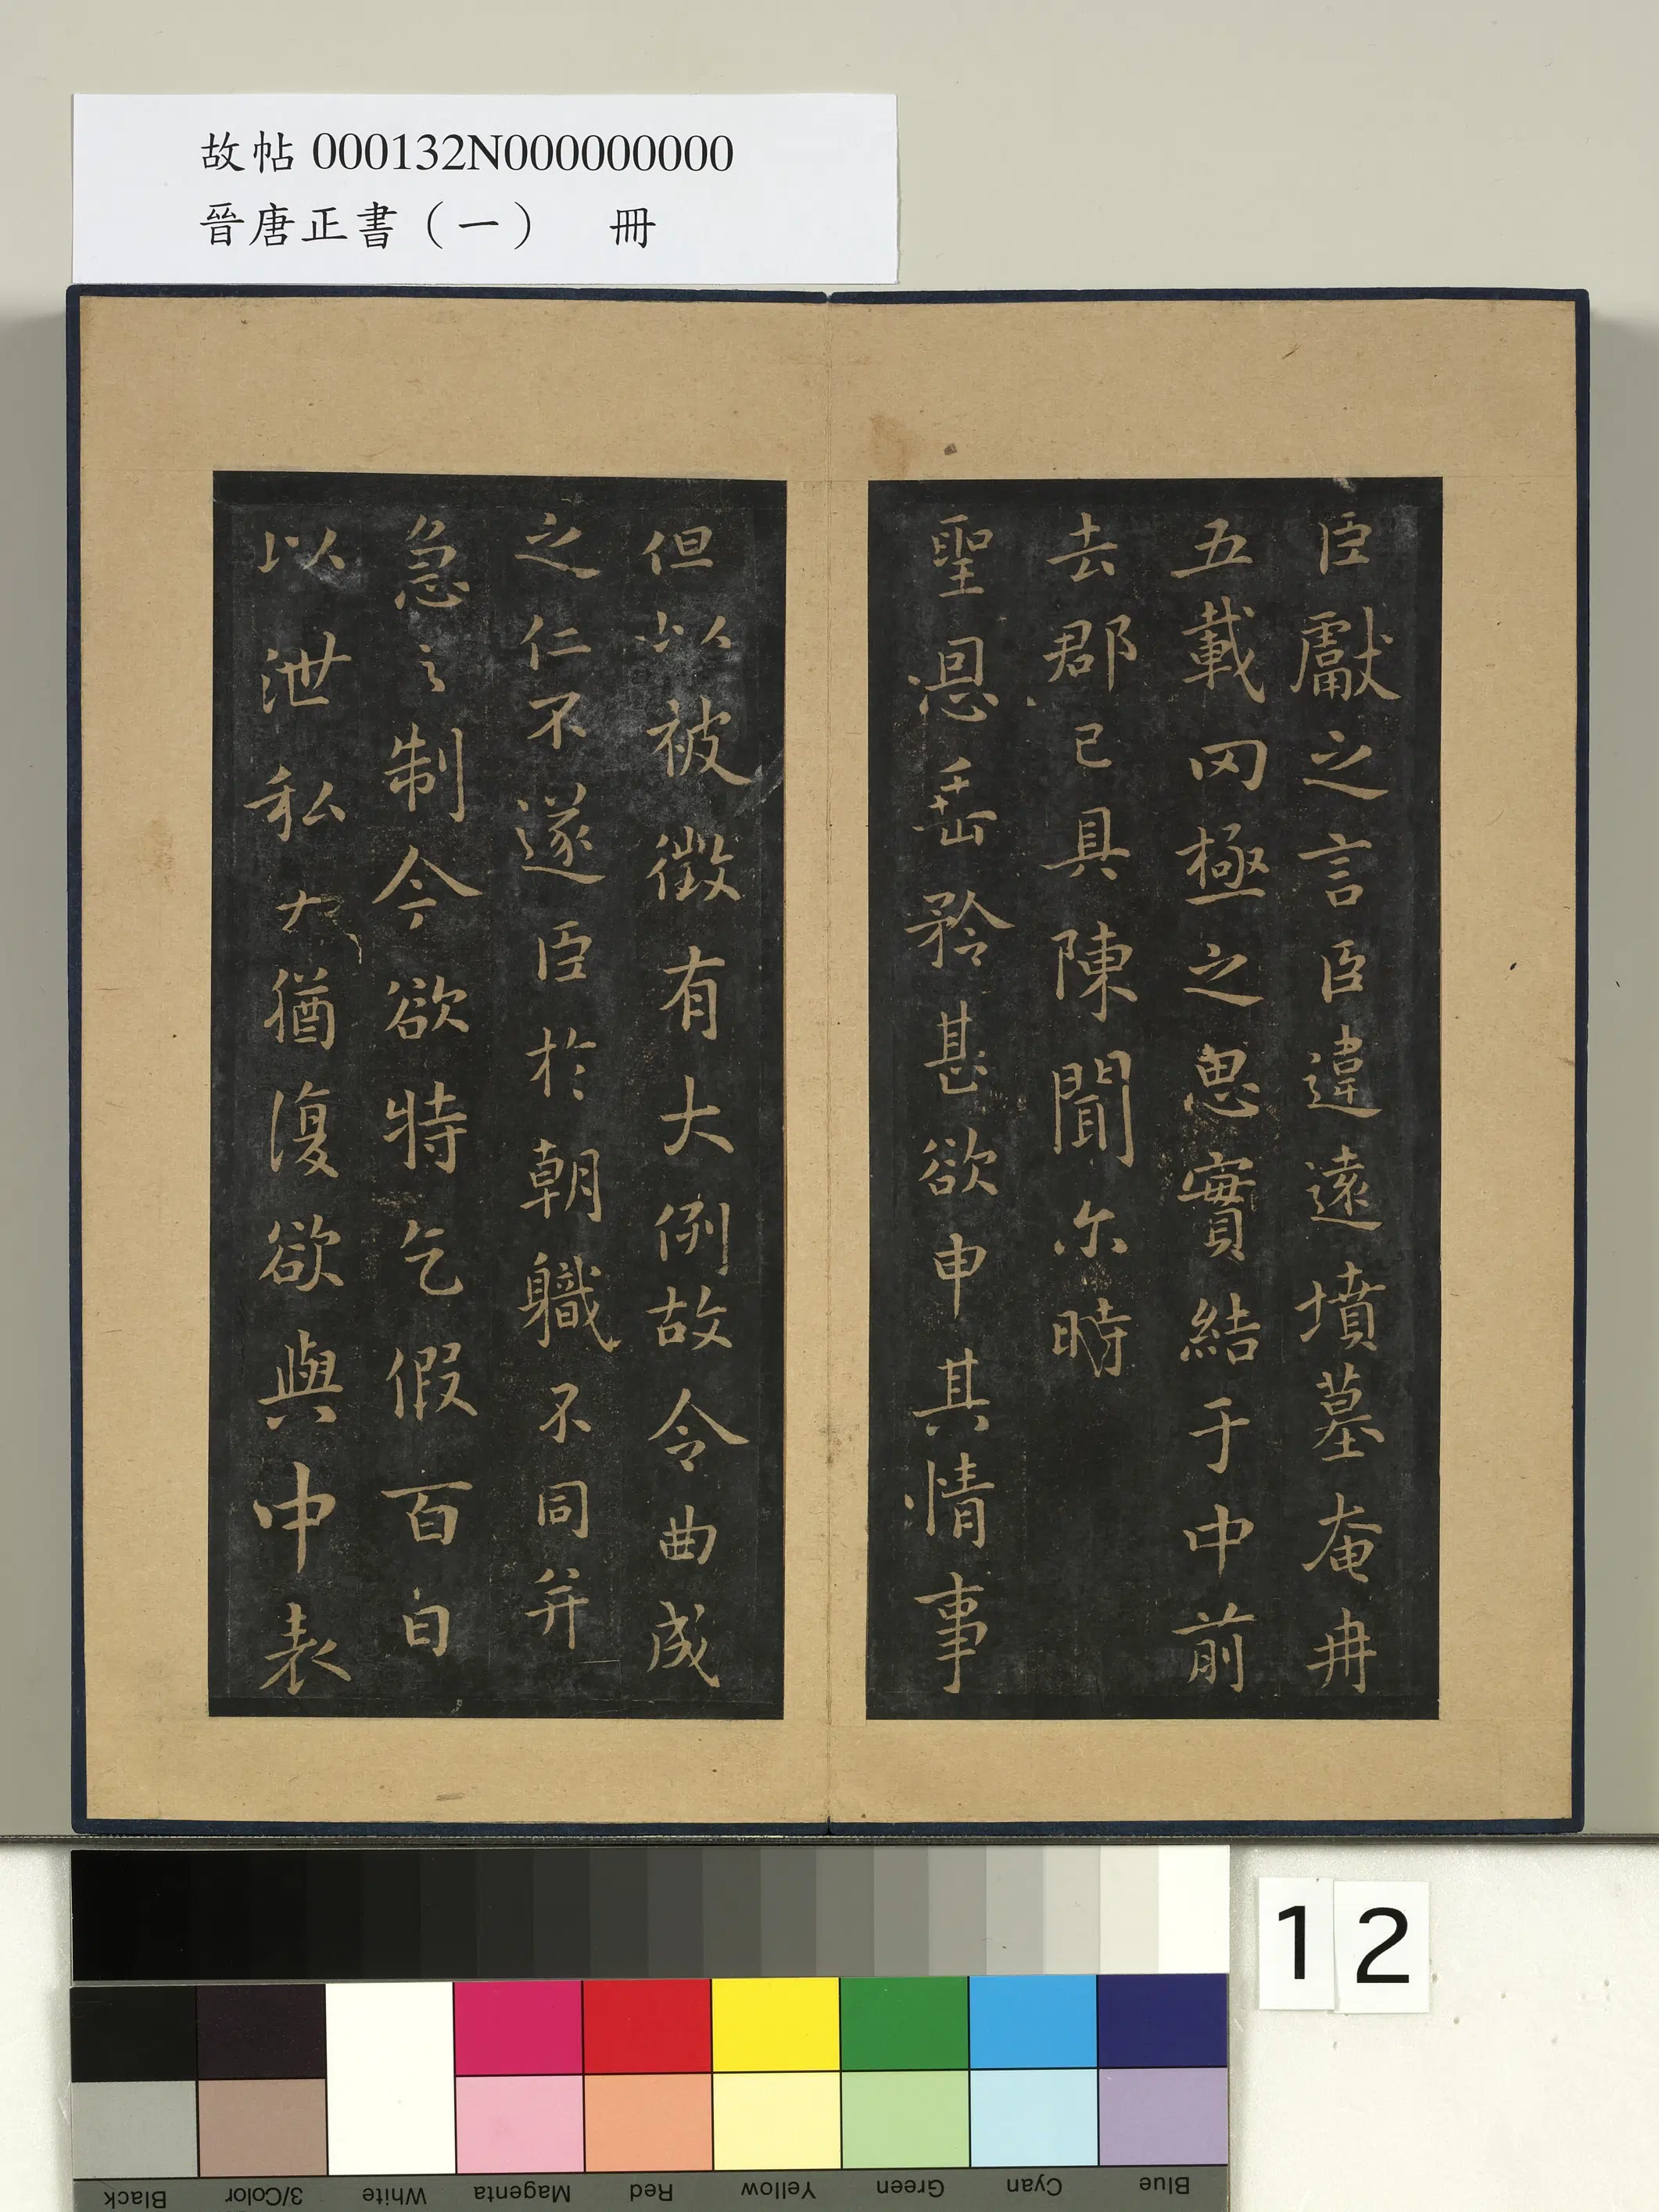 故帖 000132N000000000
晉唐正書（一） 冊
臣獻之言臣違遠墳墓奄冉
五載罔極之思實結于中前
去郡已具陳聞尒時
聖恩垂矜甚欲申其情事
但以被徵有大例故令曲成
之仁不遂臣於朝職不同并
急之制今欲特乞假百日
以泄私大猶復欲與中表
12
Black
3/Color
White
Magenta
Red
Yellow
Green
Cyan
Blue